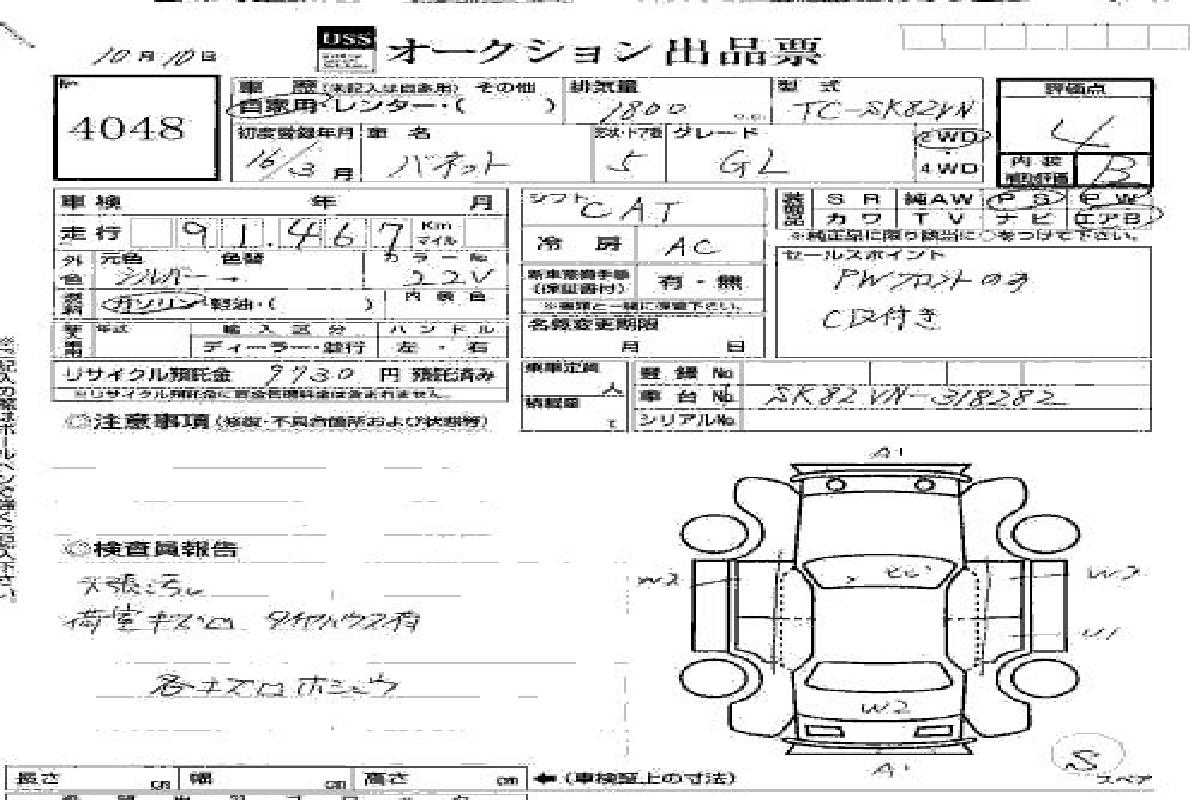 10月10日
USS オークション出品票
No.
4048
車歴 (未記入は自家用) その他
自家用・レンター・( )
排気量
1800
型式
TC-SK82VN
評価点
4
初度登録年月
16/3月
車名
バネット
形状・ドア数
5
グレード
GL
2WD
4WD
内装
B
車検 年 月
走行 91,467 Km マイル
外色 元色 色替 カラーNo
シルバー→ 22V
燃料 ガソリン・軽油・( ) 内装色
年式 輸入区分 ハンドル
ディーラー・並行 左・右
リサイクル預託金 9730 円 預託済み
※リサイクル預託金に資金管理料金は含まれません。
シフト CAT
冷房 AC
新車整備手帳(保証書付) 有・無
※書類と一緒に保管下さい。
名義変更期限
月 日
装備品 SR 純AW PS PW
カワ TV ナビ エアB
※純正品に限り該当に○をつけて下さい。
セールスポイント
PWフロントのみ
CD付き
乗車定員 人
積載量 t
登録No
車台No. SK82VN-318282
シリアルNo.
◎注意事項(修復・不具合箇所および状態等)
◎検査員報告
天張汚れ
荷室キズ凹 タイヤハウス有
各キズ凹ホシュウ
A1
W2
W3
U1
W2
A1
S
スペア
長さ cm 幅 cm 高さ cm ←(車検証上の寸法)